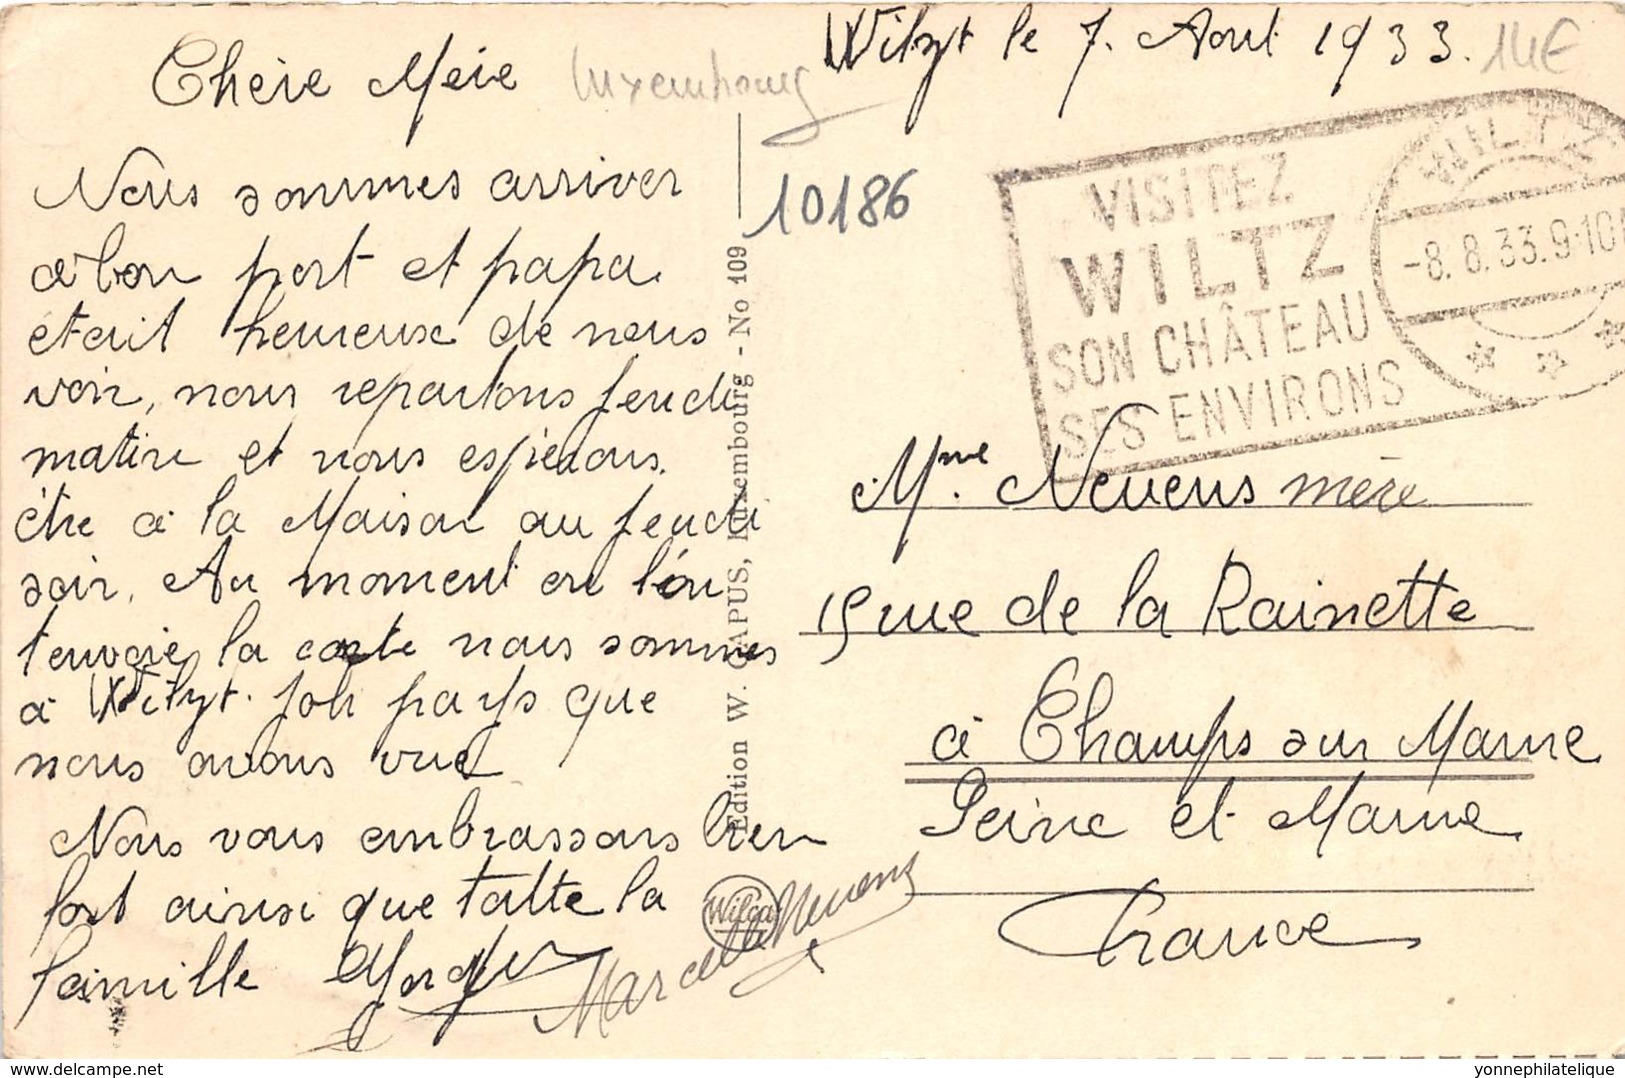 Wilzt le 7. Aout 1933. 14€
Chère Mère
Luxembourg
10186
Nous sommes arriver
a bon port et papa.
était heureuse de nous
voir, nous repartons Jeudi
matin et nous espérons.
être a la Maison au Jeudi
soir. Au moment ou l'on
t'envoie la carte nous sommes
a Wilzt. Joli pays que
nous avons vue
Nous vous embrassons bien
fort ainsi que toute la
famille
Marcelle Neuens
Edition W. CAPUS, Luxembourg - No 109
Wilca
VISITEZ
WILTZ
SON CHÂTEAU
SES ENVIRONS
WILTZ
-8.8.33.9-10
Mme. Neuens mère
15 rue de la Rainette
a Champs sur Marne
Seine et Marne
France
delcampe.net
yonnephilatelique